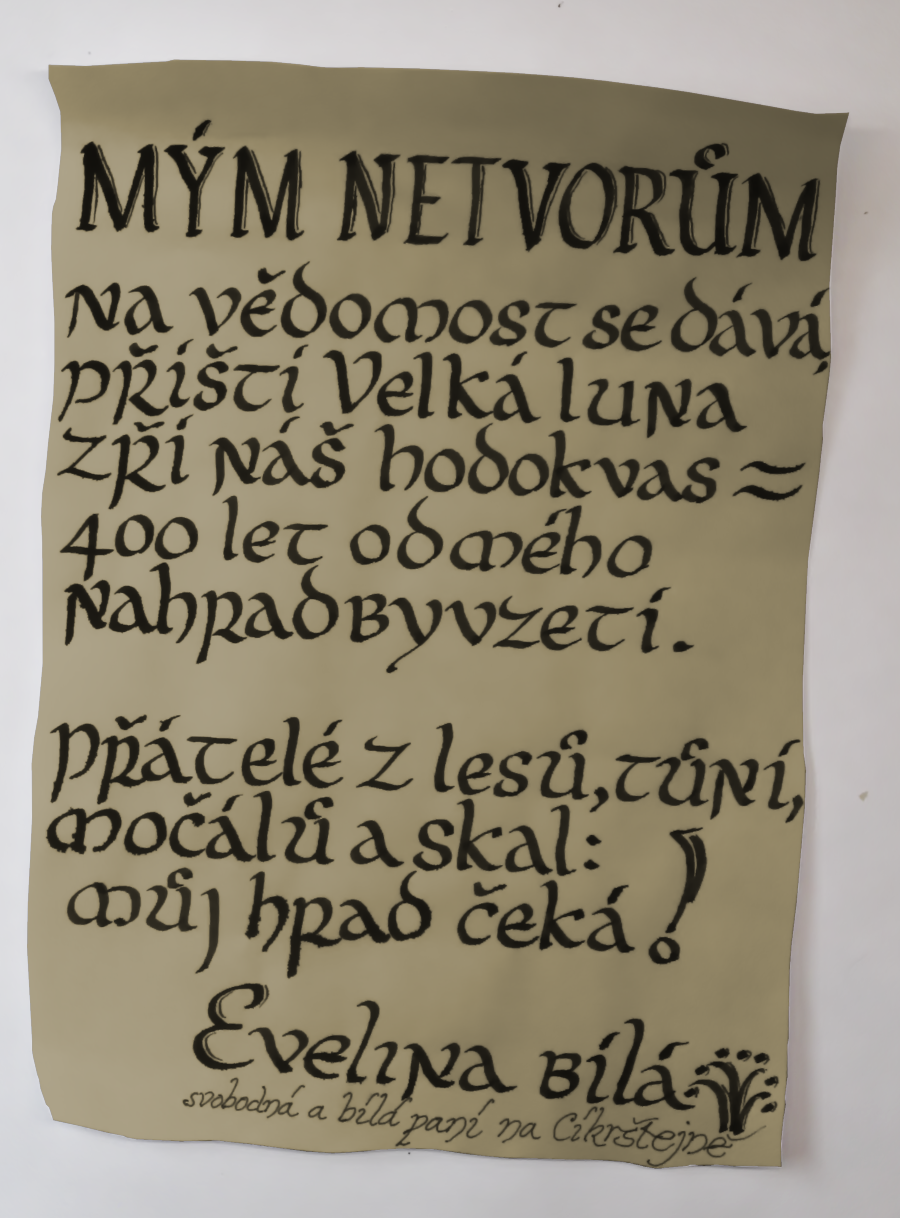 MÝM NETVORŮM
Na vědomost se dává,
příští Velká luna
zří náš hodokvas =
400 let od mého
nahradbyvzetí.
Přátelé z lesů, tůní,
močálů a skal:
můj hrad čeká!
Evelina Bílá
svobodná a bílá paní na Cikrštejně